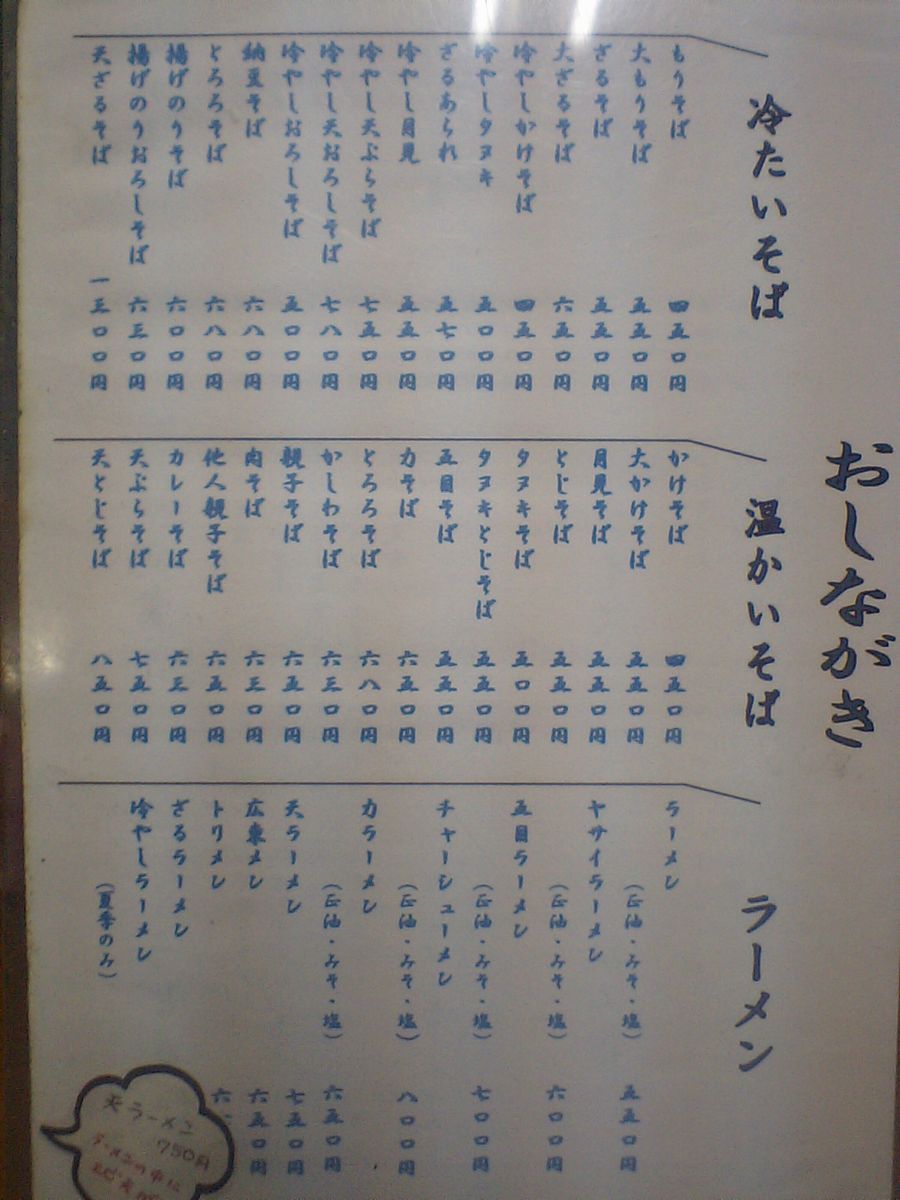 おしながき
冷たいそば
もりそば 四五〇円
大もりそば 五五〇円
ざるそば 五五〇円
大ざるそば 六五〇円
冷やしかけそば 四五〇円
冷やしタヌキ 五〇〇円
ざるあられ 五七〇円
冷やし月見 五五〇円
冷やし天ぷらそば 七五〇円
冷やし天おろしそば 七八〇円
冷やしおろしそば 五〇〇円
納豆そば 六八〇円
とろろそば 六八〇円
揚げのりそば 六〇〇円
揚げのりおろしそば 六三〇円
天ざるそば 一三〇〇円
温かいそば
かけそば 四五〇円
大かけそば 五五〇円
月見そば 五五〇円
とじそば 五五〇円
タヌキそば 五〇〇円
タヌキとじそば 五五〇円
五目そば 五五〇円
力そば 六五〇円
とろろそば 六八〇円
かしわそば 六三〇円
親子そば 六五〇円
肉そば 六三〇円
他人親子そば 六五〇円
カレーそば 六三〇円
天ぷらそば 七五〇円
天とじそば 八五〇円
ラーメン
ラーメン
(正油・みそ・塩) 五五〇円
ヤサイラーメン
(正油・みそ・塩) 六〇〇円
五目ラーメン
(正油・みそ・塩) 七〇〇円
チャーシューメン
(正油・みそ・塩) 八〇〇円
力ラーメン
(正油・みそ・塩) 六五〇円
天ラーメン 七五〇円
広東メン 六五〇円
トリメン 六
ざるラーメン
冷やしラーメン
(夏季のみ)
天ラーメン
750円
ラーメンの中に